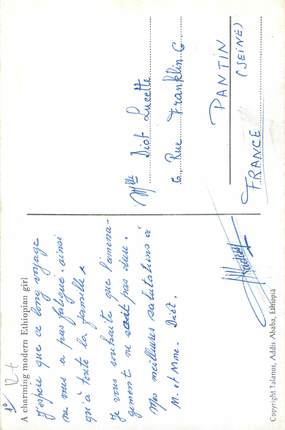 A charming modern Ethiopian girl
J'espère que ce long voyage
ne vous a pas fatigué, ainsi
qu'à toute la famille.
Je vous souhaite que l'ména-
gement ne soit pas dur.
Mes meilleures salutations à
M. et Mme. Diot.
Mlle Diot Lucette
6, Rue Franklin. 6
PANTIN
(SEINE)
FRANCE
Copyright Talamus, Addis Ababa, Ethiopia